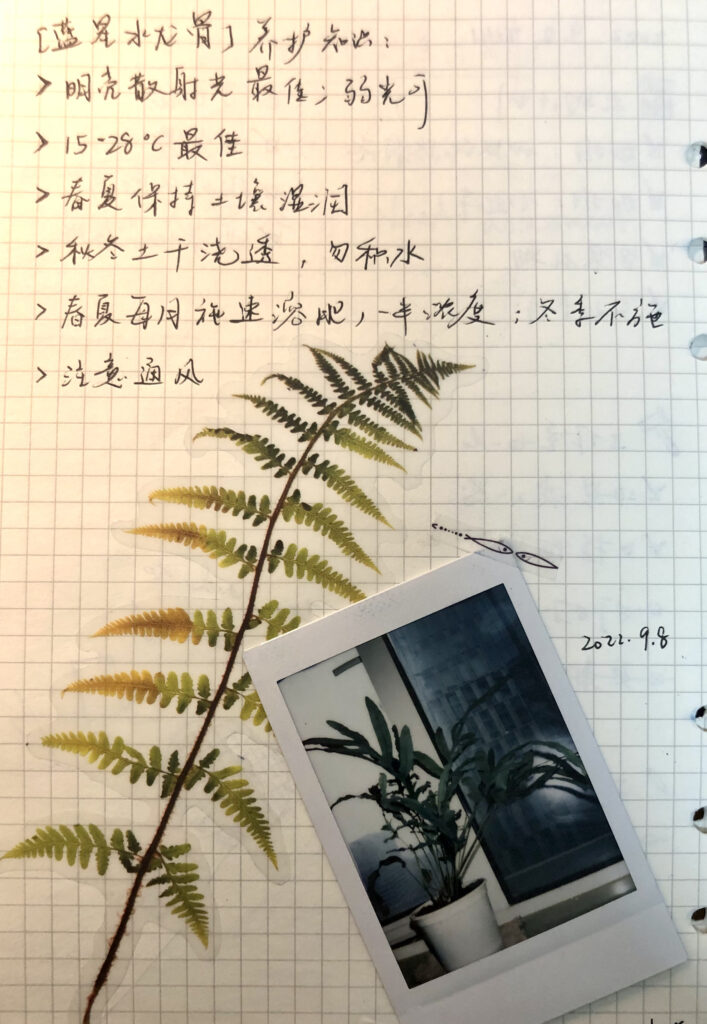 [蓝星水龙骨] 养护知识:
> 明亮散射光最佳;弱光可
> 15-28°C 最佳
> 春夏保持土壤湿润
> 秋冬土干浇透,勿积水
> 春夏每月施速溶肥,一半浓度;冬季不施
> 注意通风
2022.9.8